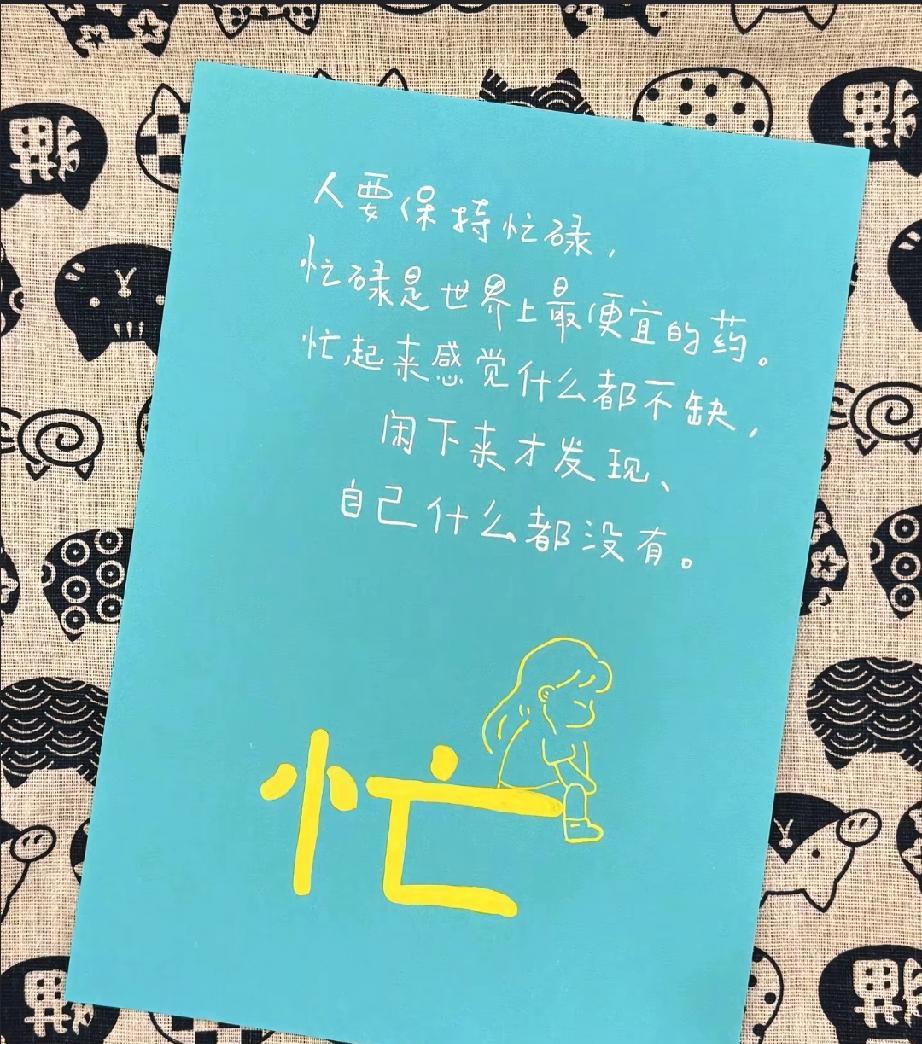 人要保持忙碌，
忙碌是世界上最便宜的药。
忙起来感觉什么都不缺，
闲下来才发现、
自己什么都没有。
忙